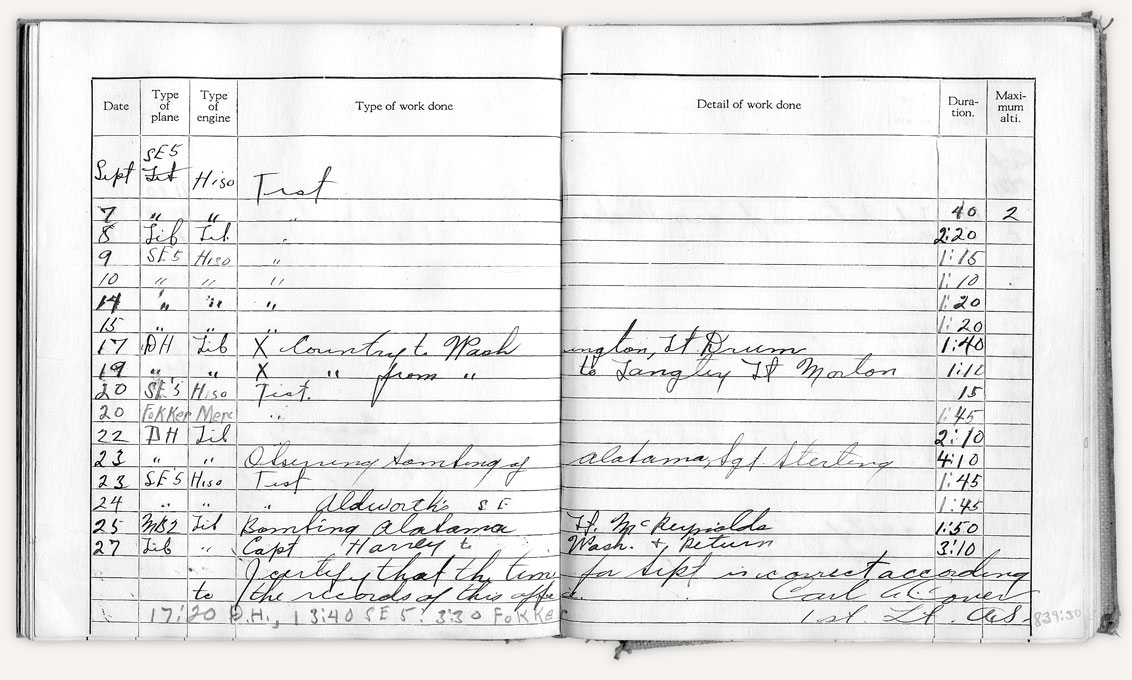 Date Type of plane Type of engine Type of work done Detail of work done Dura- tion. Maxi- mum alti.
SE5
Sept Hiso Test
7 " " " 40 2
8 Lib Lib. " 2:20
9 SE5 Hiso " 1:15
10 " " " 1:10
14 " " " 1:20
15 " " " 1:20
17 DH Lib X Country to Washington, Lt Drum 1:40
19 " " X " from " to Langley Lt Morton 1:10
20 SE5 Hiso Test. 15
20 Fokker Merc " 1:45
22 DH Lib 2:10
23 " " Observing bombing of Alabama, Sgt. Sterling 4:10
23 SE5 Hiso Test 1:45
24 " " " Aldworth's SE 1:45
25 MB2 Lib Bombing Alabama Lt. McReynolds 1:50
27 Lib " Capt Harvey to Wash. + Return 3:10
I certify that the time for Sept is correct according
to the records of this office. Carl A Cover
17:20 D.H., 13:40 SE5. 3:30 Fokker 1st. Lt. A.S. 839:50